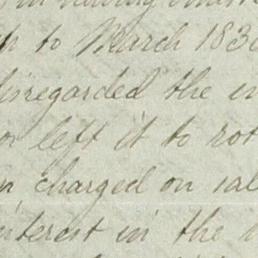 up to March 183
disregarded the
or left it to rot
charged on sal
interest in the